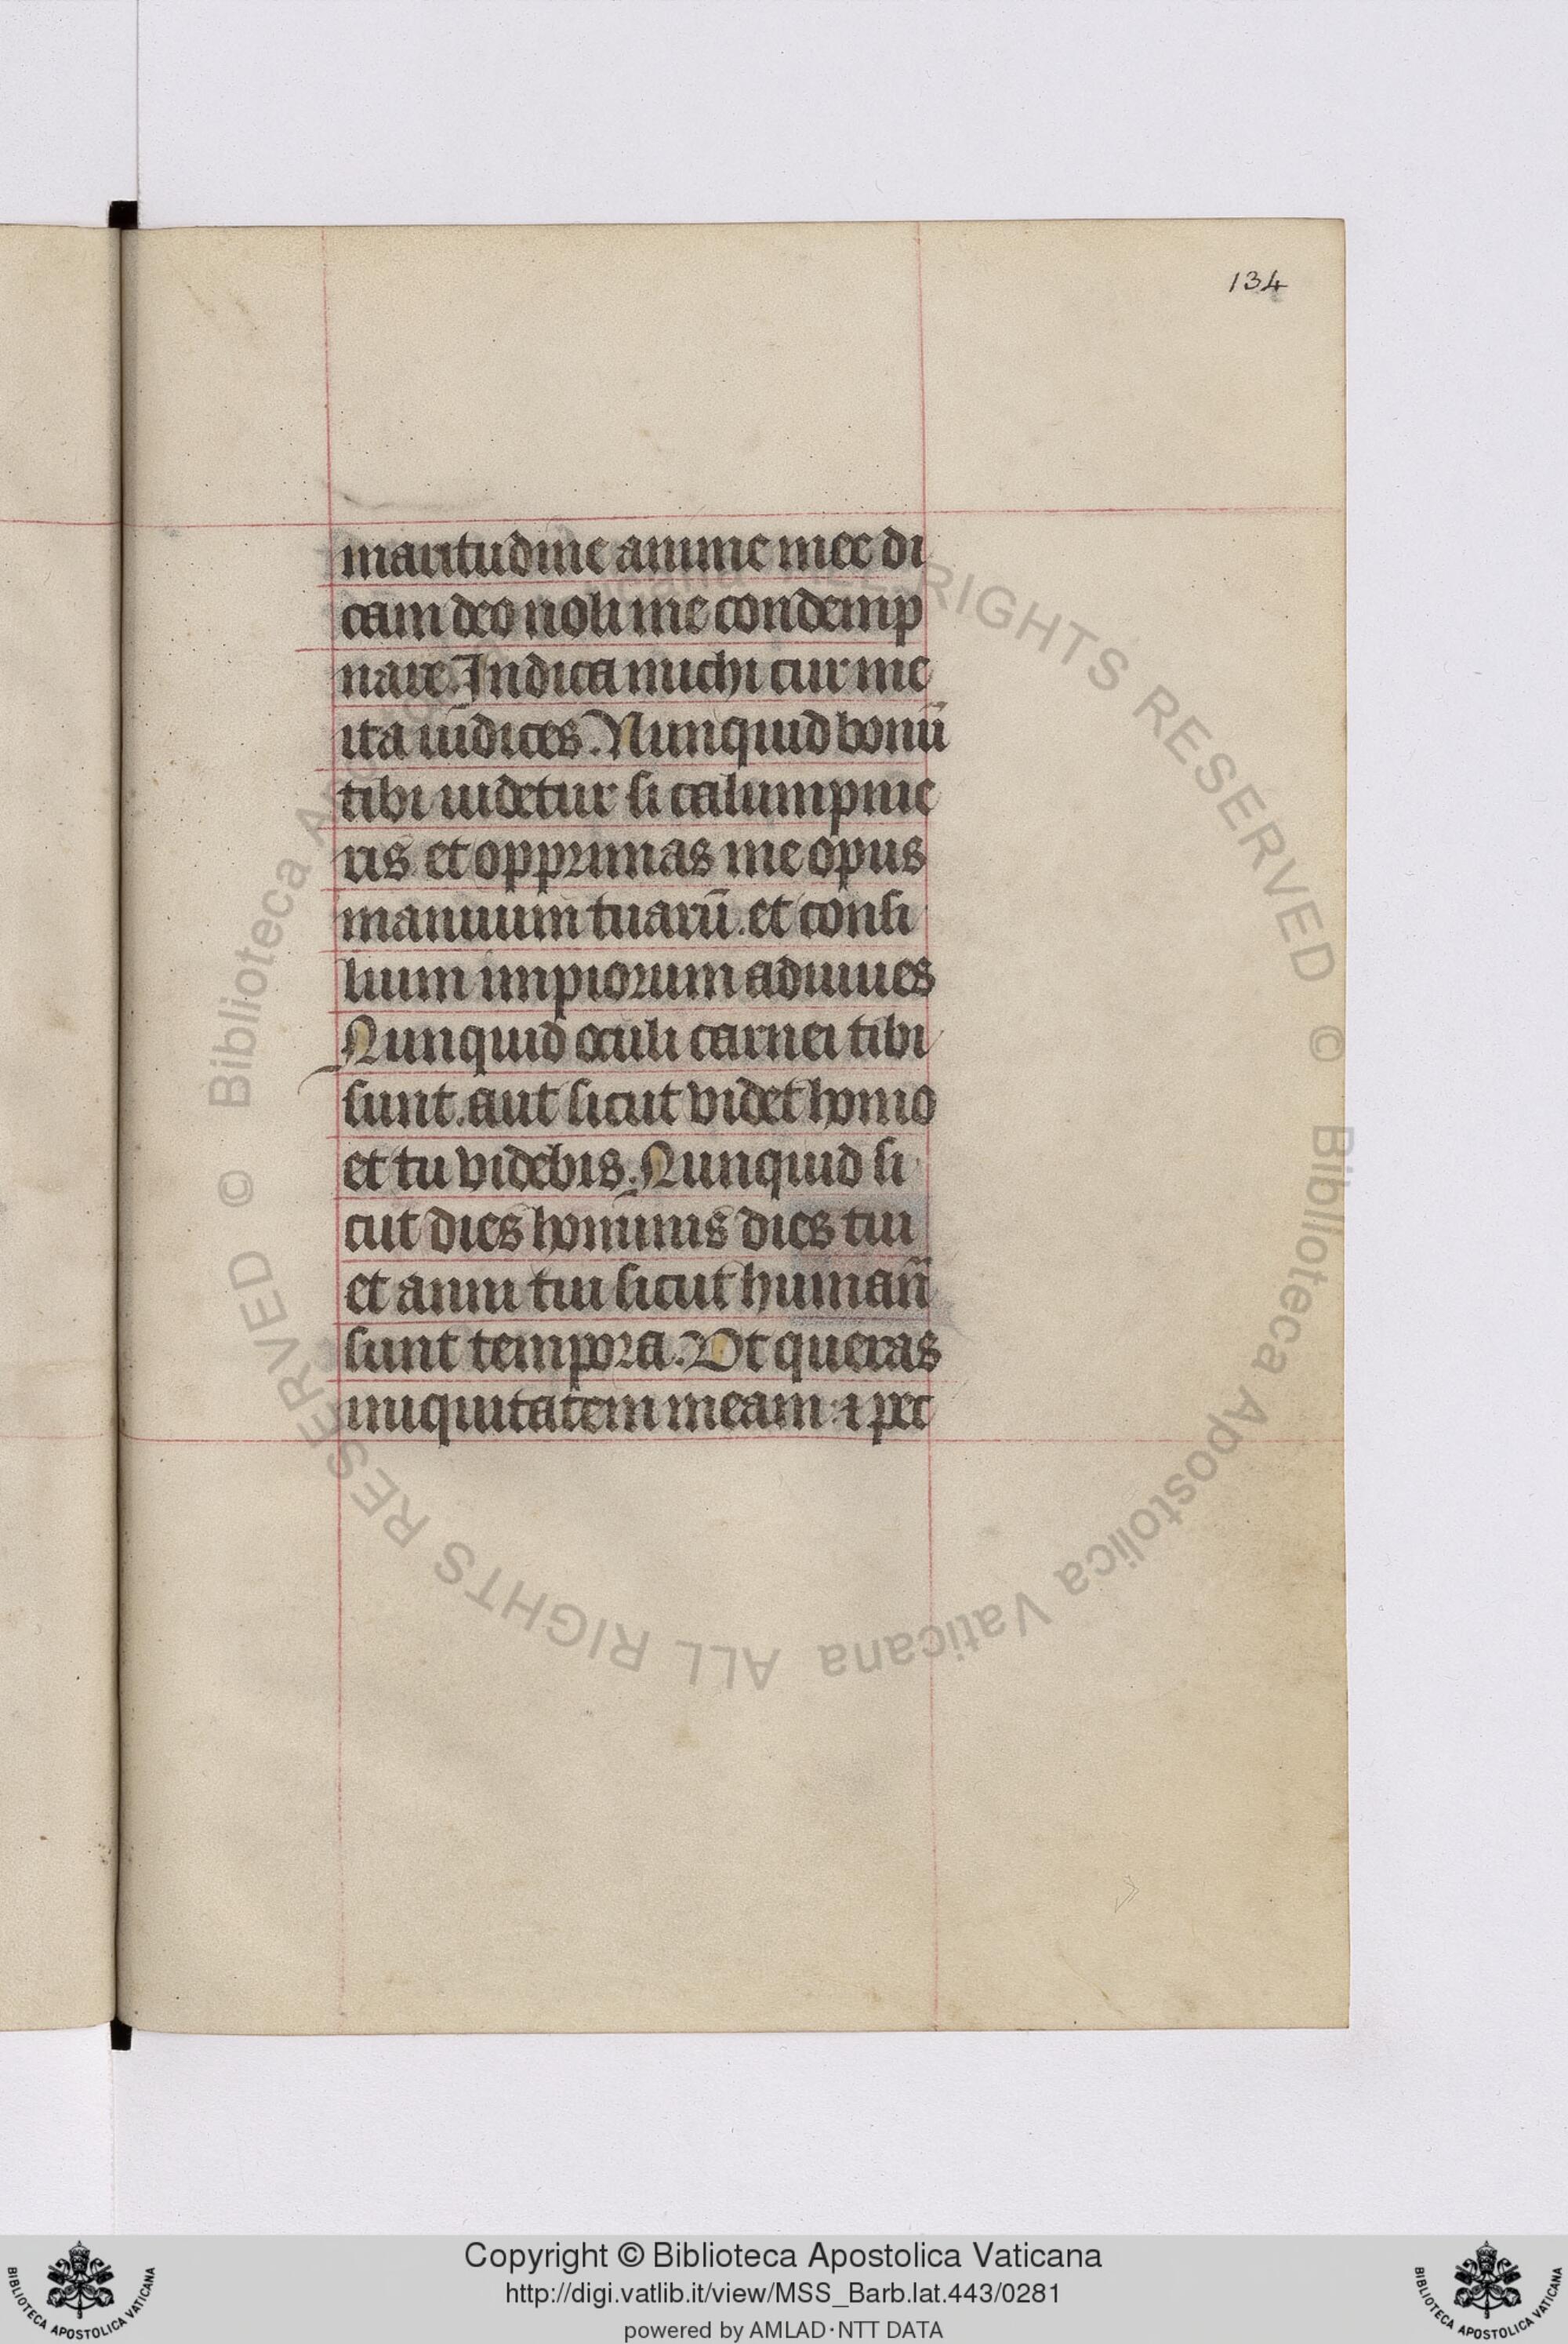 134
maritudine anime mee di
cam deo noli me condemp
nare. Indica michi cur me
ita iudices. Nunquid bonū
tibi uidetur si calumpnie
ris et opprimas me opus
manuum tuarū. et consi
lium impiorum adiuues
Nunquid oculi carnei tibi
sunt. aut sicut videt homo
et tu videbis. Nunquid si
cut dies hominis dies tui
et anni tui sicut humañ
sunt tempora. Vt queras
iniquitatem meam ⁊ pec
© Biblioteca Apostolica Vaticana ALL RIGHTS RESERVED © Biblioteca Apostolica Vaticana ALL RIGHTS RESERVED
Copyright © Biblioteca Apostolica Vaticana
http://digi.vatlib.it/view/MSS_Barb.lat.443/0281
powered by AMLAD·NTT DATA
BIBLIOTECA APOSTOLICA VATICANA
BIBLIOTECA APOSTOLICA VATICANA